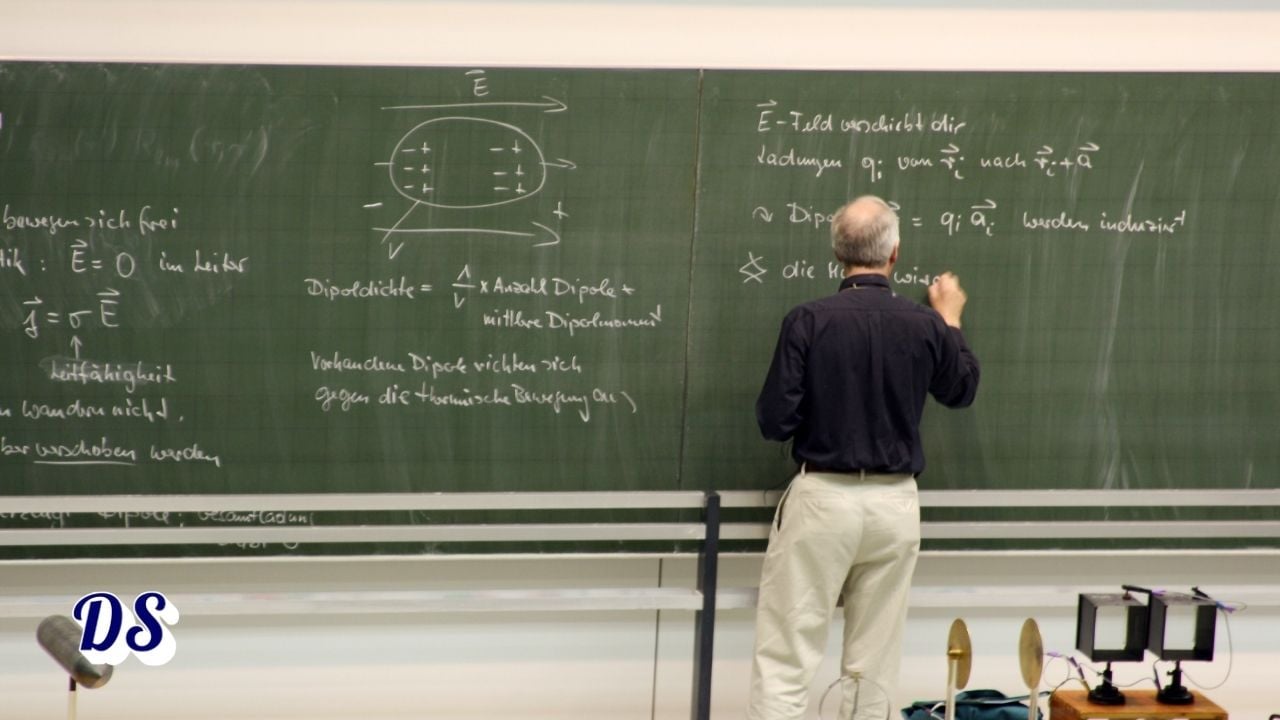 bewegen sich frei
tik : E⃗ = 0 im Leiter
j⃗ = σ E⃗
↑
Leitfähigkeit
n wandern nicht,
ber verschoben werden
Dipole, Gesamtladung
E⃗
- + - +
- + - +
- + - +
- +
V
Dipoldichte = 1/V × Anzahl Dipole *
mittlere Dipolmoment
Vorhandene Dipole richten sich
gegen die thermische Bewegung aus
E⃗-Feld verschiebt die
Ladungen qᵢ von r⃗ᵢ nach r⃗ᵢ + a⃗
Dipo = qᵢ a⃗ᵢ werden induziert
die
DS